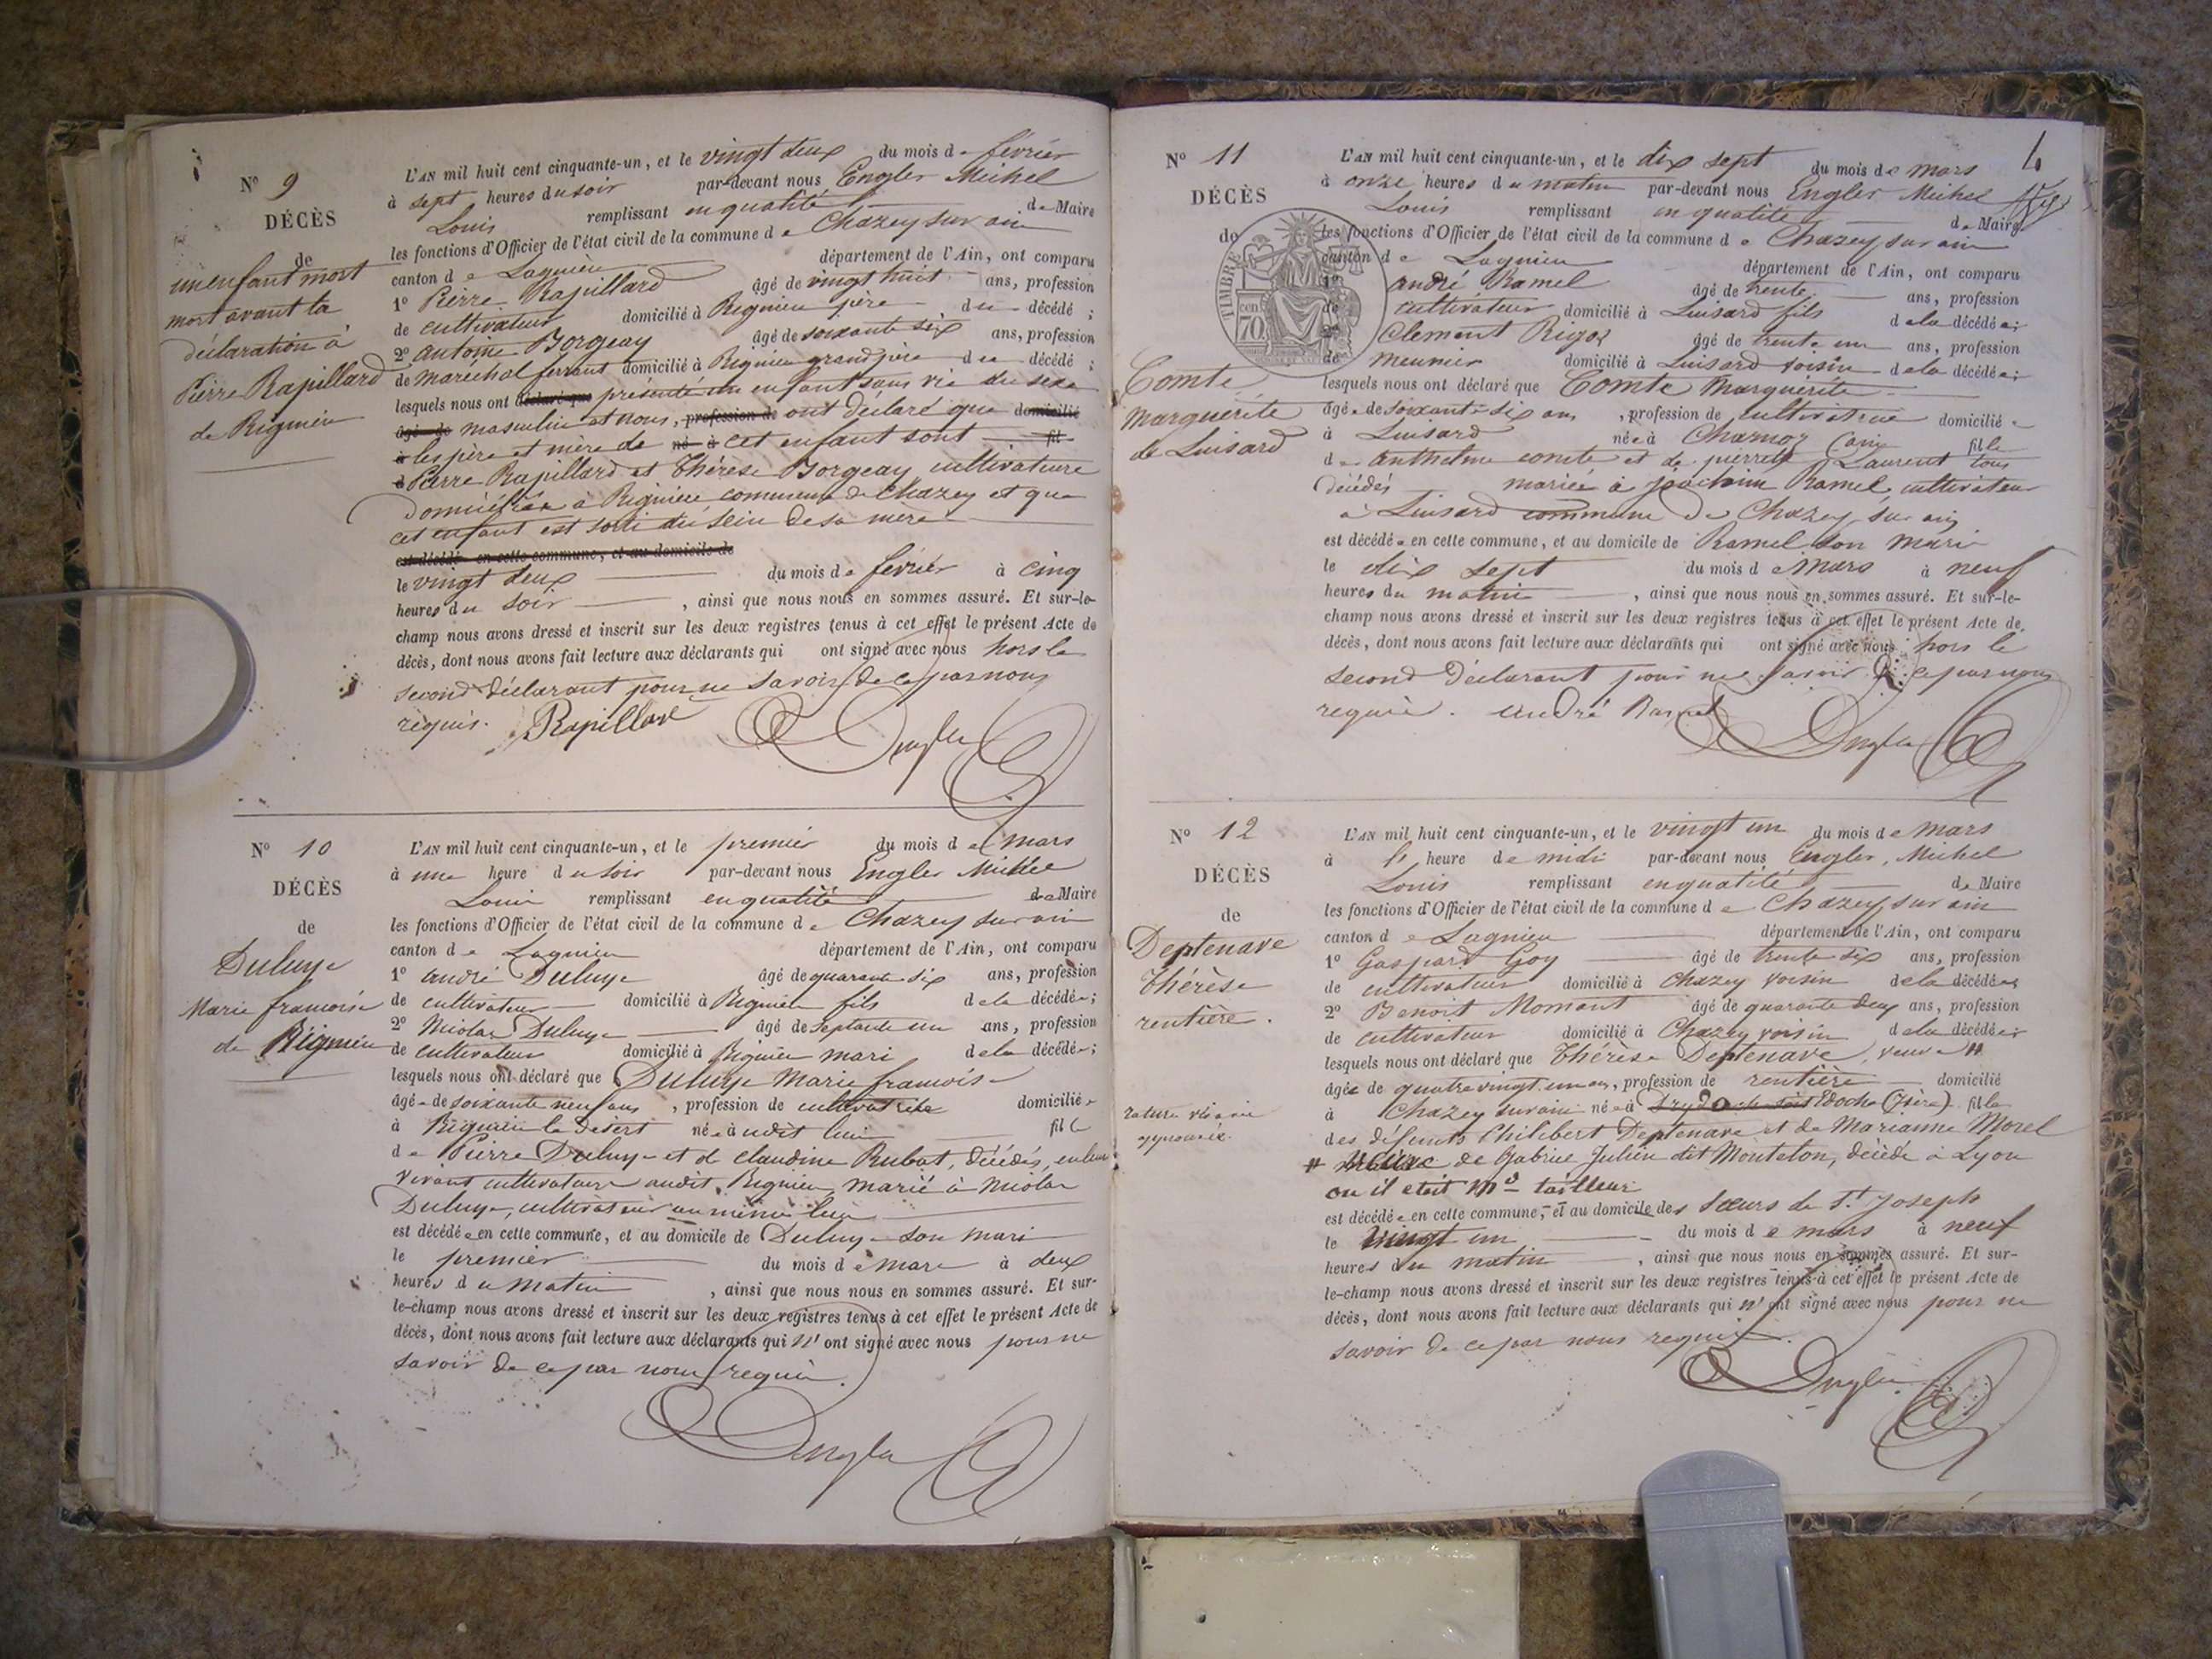 N° 9
DÉCÈS
de
un enfant mort
mort avant la
déclaration à
Pierre Rapillard
de Rignieu
L'AN mil huit cent cinquante-un, et le vingt deux du mois de février
à sept heures du soir par-devant nous Engler Michel
Louis remplissant en qualité de Maire
les fonctions d'Officier de l'état civil de la commune de Chazey sur ain
canton de Lagnieu département de l'Ain, ont comparu
1° Pierre Rapillard âgé de vingt huit ans, profession
de cultivateur domicilié à Rignieu père du décédé ;
2° antoine Borgeay âgé de soixante six ans, profession
de maréchal ferrant domicilié à Rignieu grand père du décédé ;
lesquels nous ont déclaré que présenté un enfant sans vie du sexe
âgé de masculin et nous, profession de ont déclaré que domicilié
à les père et mère de né à cet enfant sont fil
d Pierre Rapillard et Thérèse Borgeay cultivateurs
domiciliés à Rignieu commune de Chazey et que
cet enfant est sorti du sein de sa mère
est décédé en cette commune, et au domicile de
le vingt deux du mois de février à cinq
heures du soir , ainsi que nous nous en sommes assuré. Et sur-le-
champ nous avons dressé et inscrit sur les deux registres tenus à cet effet le présent Acte de
décès, dont nous avons fait lecture aux déclarants qui ont signé avec nous hors le
second déclarant pour ne savoir de ce par nous
requis. Rapillard Engler
N° 10
DÉCÈS
de
Duluye
Marie francoise
de Rignieu
L'AN mil huit cent cinquante-un, et le premier du mois de mars
à une heure du soir par-devant nous Engler Michel
Louis remplissant en qualité de Maire
les fonctions d'Officier de l'état civil de la commune de Chazey sur ain
canton de Lagnieu département de l'Ain, ont comparu
1° andré Duluye âgé de quarante six ans, profession
de cultivateur domicilié à Rignieu fils de la décédée ;
2° Nicolas Duluye âgé de septante un ans, profession
de cultivateur domicilié à Rignieu mari de la décédée ;
lesquels nous ont déclaré que Duluye Marie francoise
âgée de soixante neuf ans , profession de cultivatrice domiciliée
à Rignieu le Désert née à udit lieu fill
de Pierre Duluye et de Claudine Rubat, décédés, en leur
vivant cultivateurs audit Rignieu, marié à Nicolas
Duluye, cultivateur au même lieu
est décédée en cette commune, et au domicile de Duluye son mari
le premier du mois de mars à deux
heures du matin , ainsi que nous nous en sommes assuré. Et sur-
le-champ nous avons dressé et inscrit sur les deux registres tenus à cet effet le présent Acte de
décès, dont nous avons fait lecture aux déclarants qui n' ont signé avec nous pour ne
savoir de ce par nous requis.
Engler
4
N° 11
DÉCÈS
de
TIMBRE
cen
70
Comte
Marguerite
de Luisard
L'AN mil huit cent cinquante-un, et le dix sept du mois de mars
à onze heures du matin par-devant nous Engler Michel
Louis remplissant en qualité de Maire
les fonctions d'Officier de l'état civil de la commune de Chazey sur ain
canton de Lagnieu département de l'Ain, ont comparu
1° andré Ramel âgé de trente ans, profession
de cultivateur domicilié à Luisard fils de la décédée ;
2° Clement Rigoz âgé de trente un ans, profession
de meunier domicilié à Luisard voisin de la décédée ;
lesquels nous ont déclaré que Comte Marguerite
âgée de soixante six ans , profession de cultivatrice domiciliée
à Luisard née à Charnoz (ain) fille
de anthelme comte et de pierrette Laurent tous
décédés mariée à joachim Ramel, cultivateur
à Luisard commune de Chazey sur ain
est décédée en cette commune, et au domicile de Ramel son mari
le dix sept du mois de mars à neuf
heures du matin , ainsi que nous nous en sommes assuré. Et sur-le-
champ nous avons dressé et inscrit sur les deux registres tenus à cet effet le présent Acte de
décès, dont nous avons fait lecture aux déclarants qui ont signé avec nous hors le
second déclarant pour ne savoir de ce par nous
requis. andré Ramel Engler
N° 12
DÉCÈS
de
Deptenave
Thérèse
rentière.
rature
approuvée.
L'AN mil huit cent cinquante-un, et le vingt un du mois de mars
à l' heure de midi par-devant nous Engler, Michel
Louis remplissant en qualité de Maire
les fonctions d'Officier de l'état civil de la commune de Chazey sur ain
canton de Lagnieu département de l'Ain, ont comparu
1° Gaspard Goy âgé de trente six ans, profession
de cultivateur domicilié à Chazey voisin de la décédée
2° Benoit Moment âgé de quarante deux ans, profession
de cultivateur domicilié à Chazey voisin de la décédée
lesquels nous ont déclaré que Thérèse Deptenave, veuve #
âgée de quatre vingt un ans, profession de rentière domicilié
à Chazey sur ain née à Optevoz (Isère) fille
des défunts Philibert Deptenave et de Marianne Morel
# veuve de Gabriel Julien dit Montelon, décédé à Lyon
ou il etait Md tailleur
est décédée en cette commune, et au domicile des Sœurs de St Joseph
le vingt un du mois de mars à neuf
heures du matin , ainsi que nous nous en sommes assuré. Et sur-
le-champ nous avons dressé et inscrit sur les deux registres tenus à cet effet le présent Acte de
décès, dont nous avons fait lecture aux déclarants qui n' ont signé avec nous pour ne
savoir de ce par nous requis.
Engler